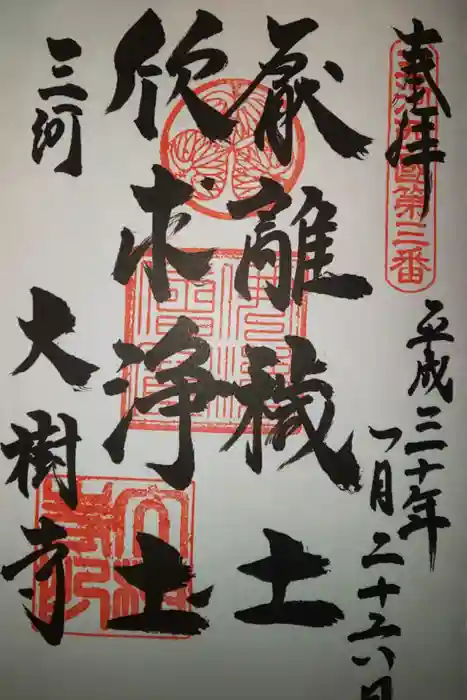 奉拝
第三番
平成三十年
一月二十六日
厭離穢土
欣求浄土
三河
大樹寺